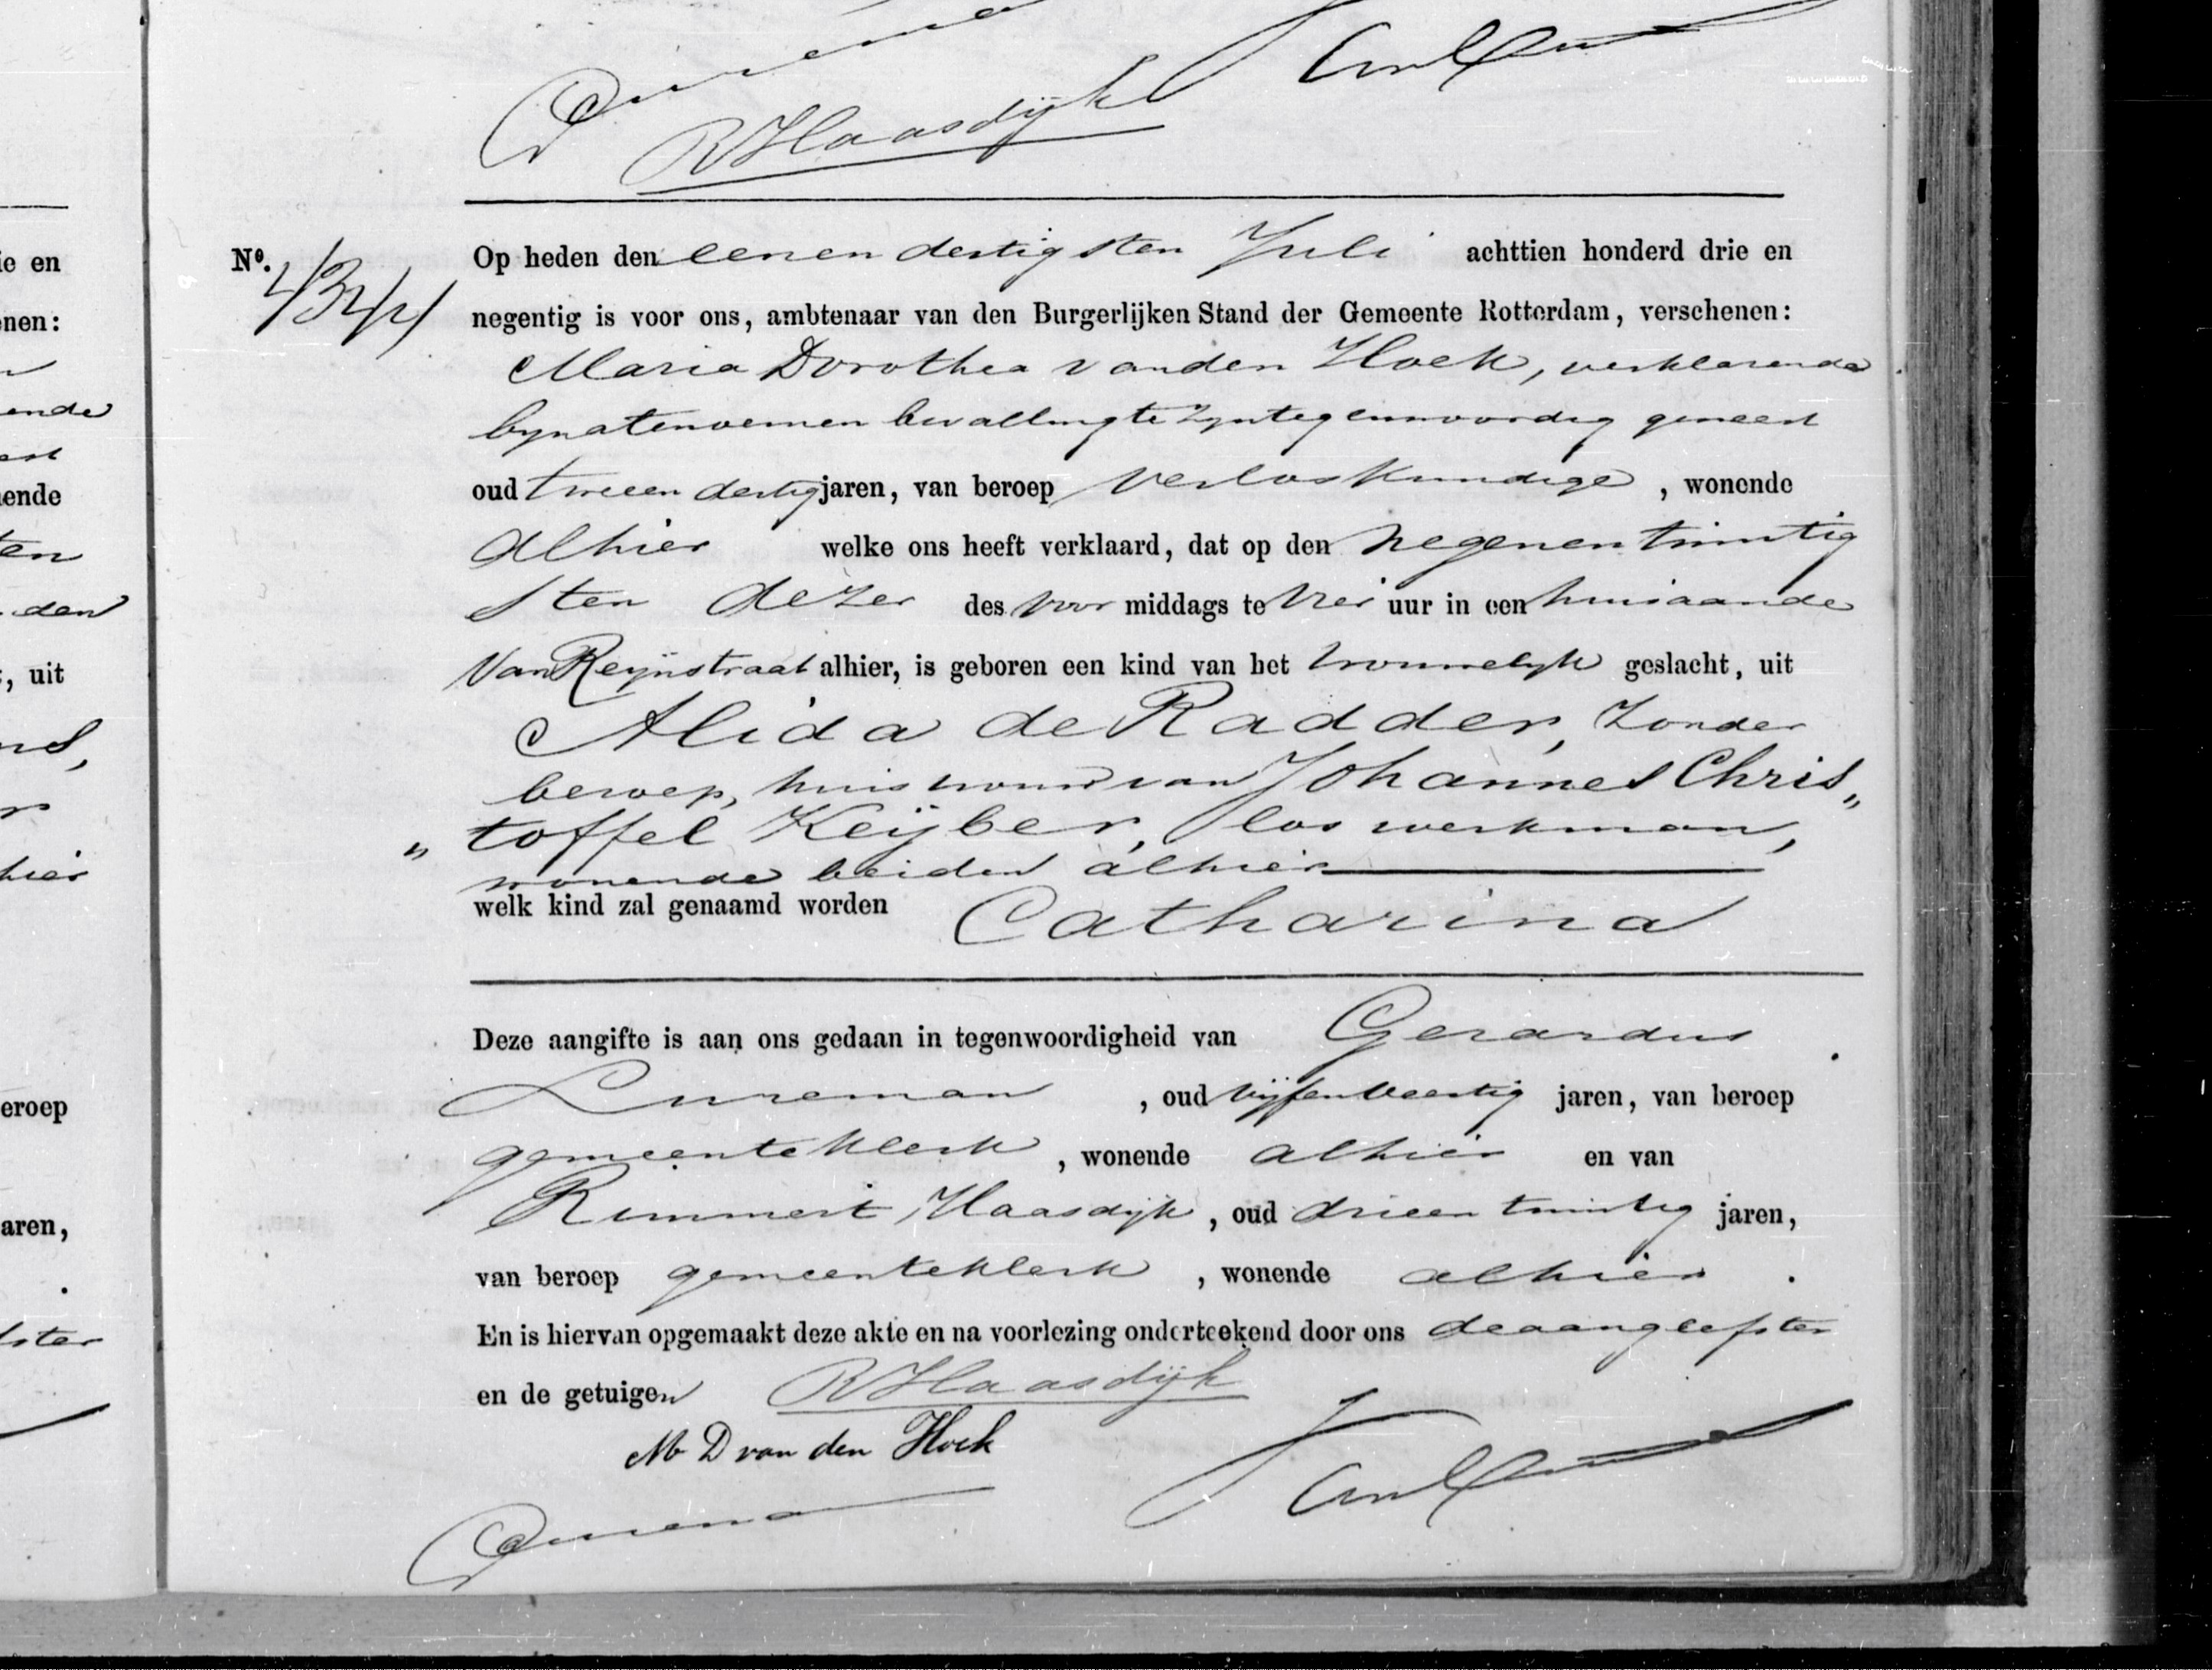 RHaasdijk
Nº. Op heden den eenendertigsten Juli achttien honderd drie en
negentig is voor ons, ambtenaar van den Burgerlijken Stand der Gemeente Rotterdam, verschenen:
Maria Dorothea van den Hoek, verklarende
by na te noemen bevalling te zyn tegenwoordig geweest
oud tweeendertig jaren, van beroep verloskundige, wonende
alhier welke ons heeft verklaard, dat op den negenentwintig
sten dezer des voor middags te vier uur in een huis aan de
Van Reynstraat alhier, is geboren een kind van het vrouwelyk geslacht, uit
Alida de Radder, zonder
beroep, huisvrouw van Johannes Chris„
„toffel Keijber, los werkman,
wonende beiden alhier
welk kind zal genaamd worden Catharina
Deze aangifte is aan ons gedaan in tegenwoordigheid van Gerardus
Lureman, oud vijfenveertig jaren, van beroep
gemeenteklerk, wonende alhier en van
Remmert Haasdijk, oud drieentwintig jaren,
van beroep gemeenteklerk, wonende alhier.
En is hiervan opgemaakt deze akte en na voorlezing onderteekend door ons de aangeefster
en de getuigen RHaasdijk
M D van den Hoek
ie en
enen:
ende
est
ende
ten
den
, uit
hier
eroep
aren,
ster